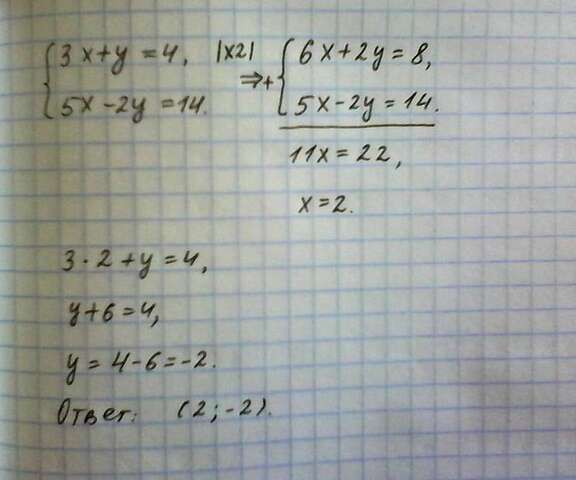 3x+y=4, |x2| 6x+2y=8,
5x-2y=14. ⇒+ 5x-2y=14.
11x=22,
x=2.
3·2+y=4,
y+6=4,
y=4-6=-2.
Ответ: (2;-2).